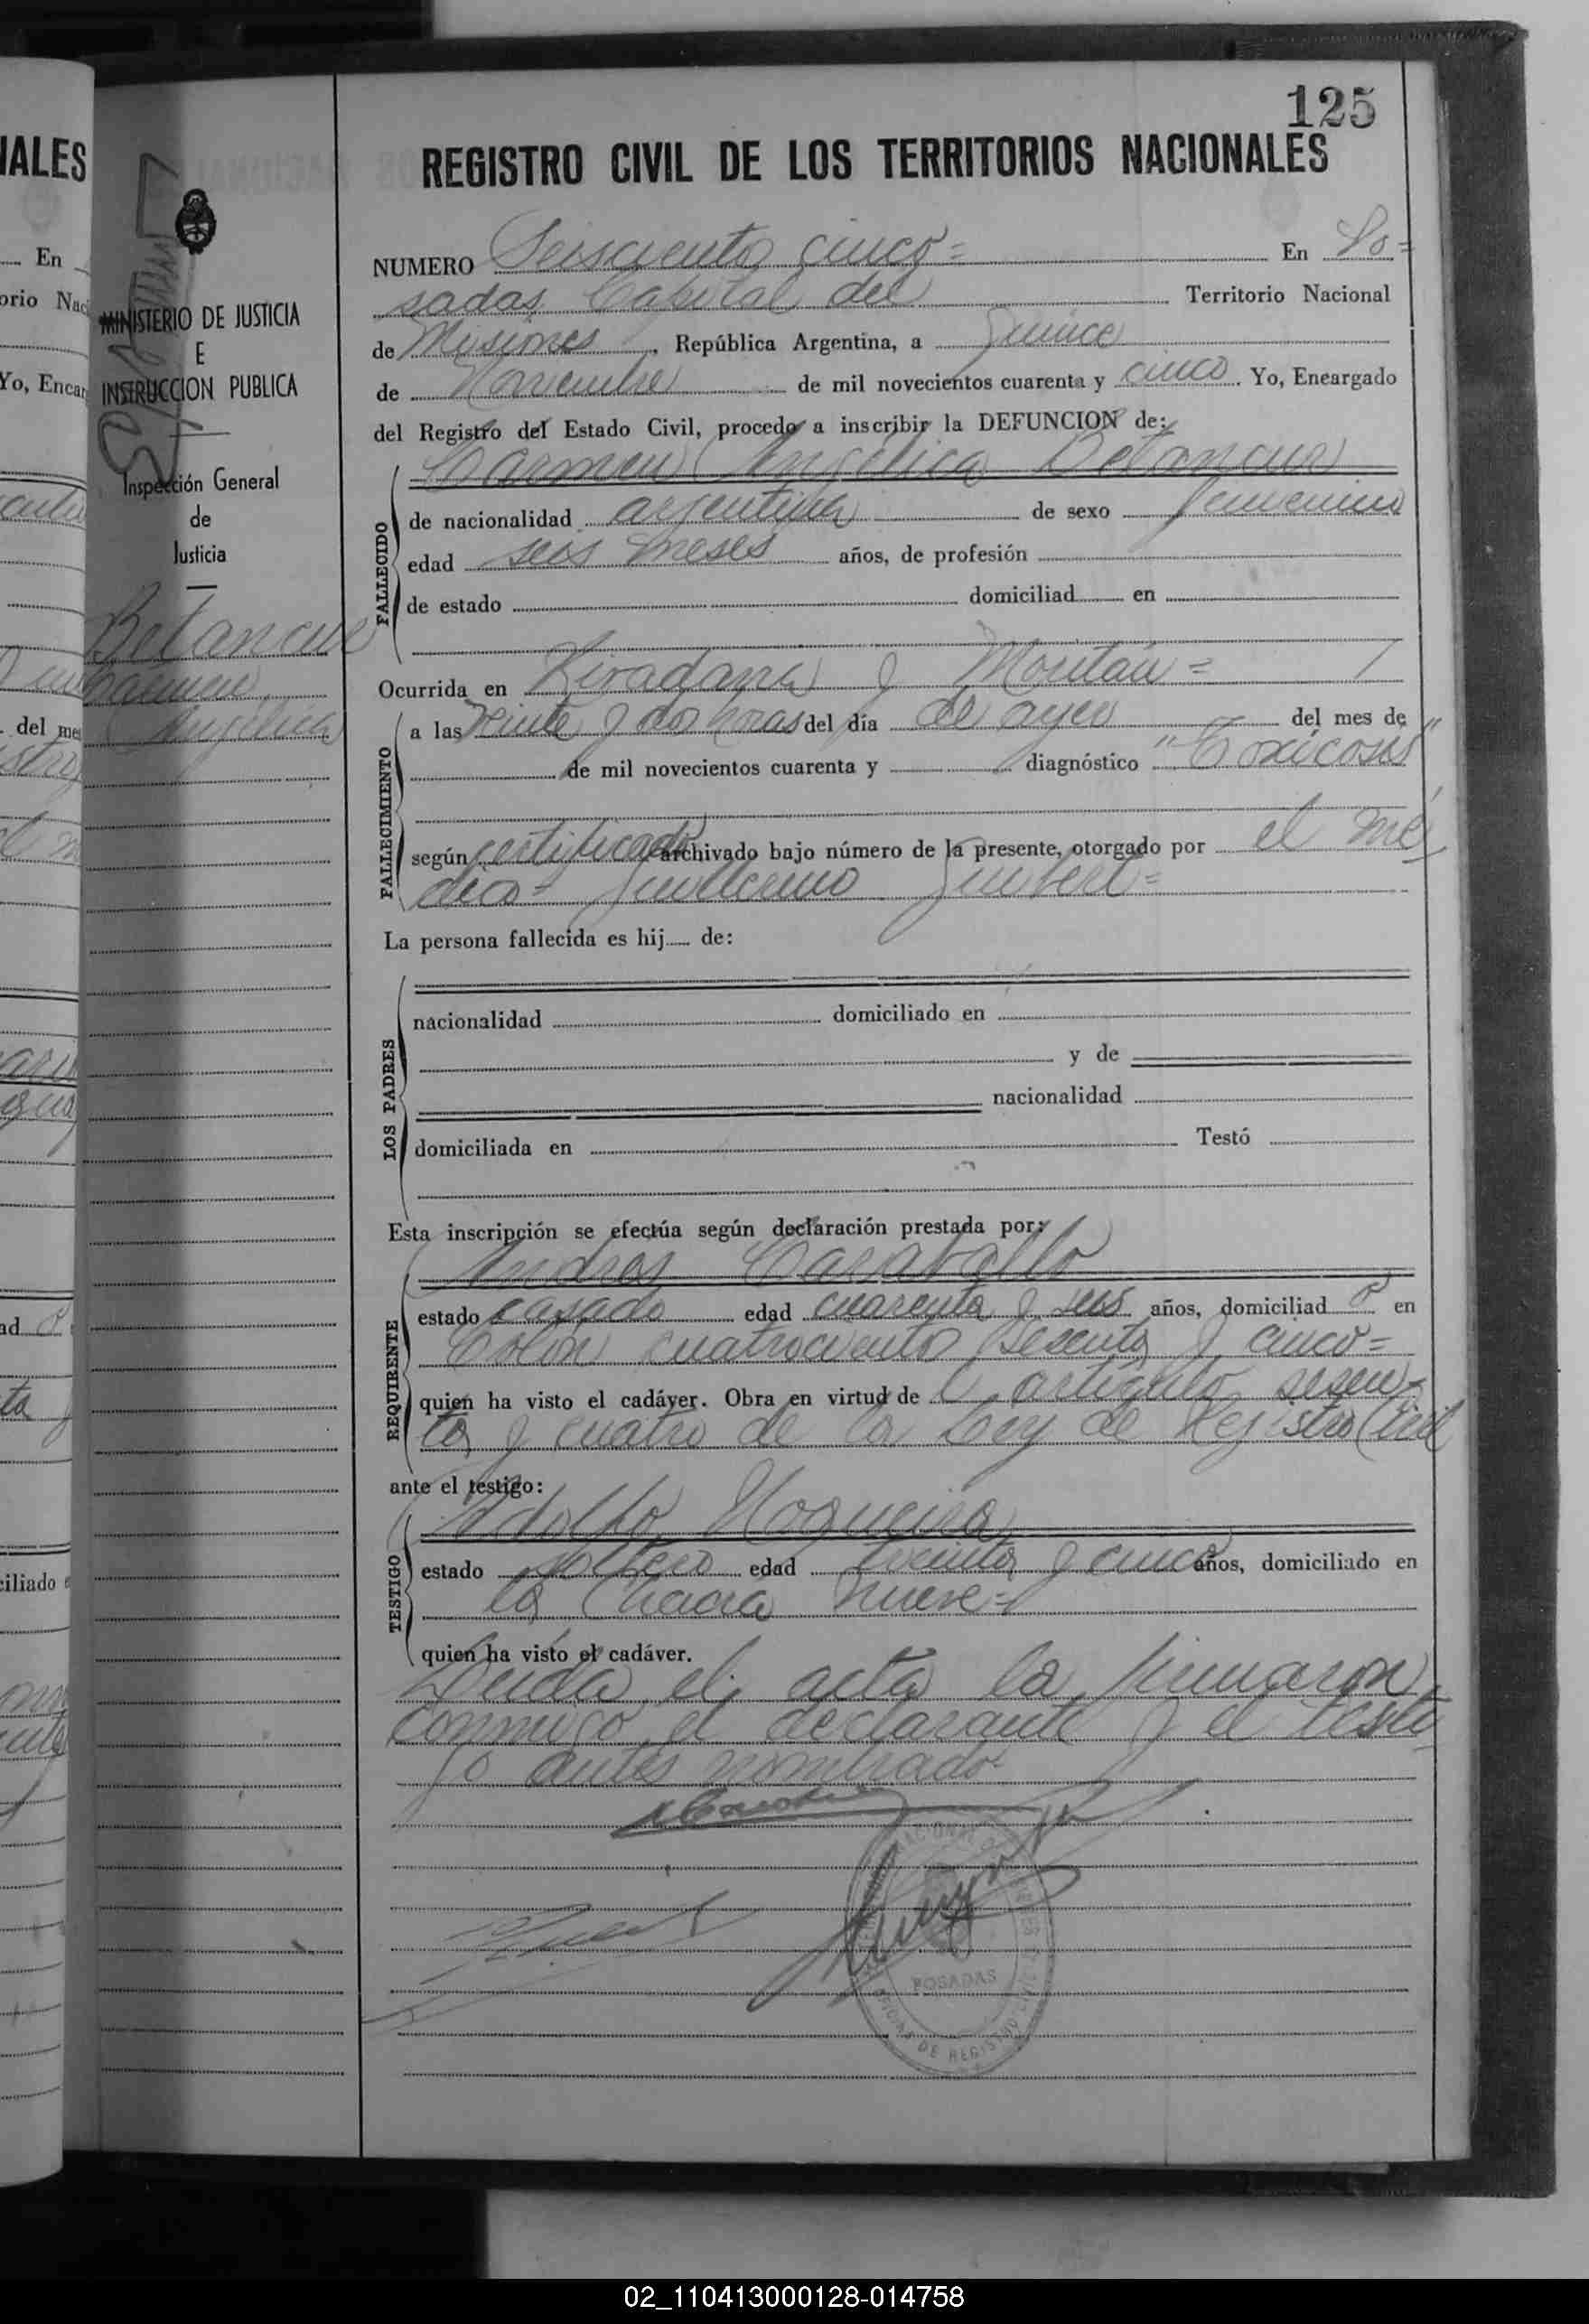 125
REGISTRO CIVIL DE LOS TERRITORIOS NACIONALES
NUMERO Seiscientos cinco= En Po=
sadas, Capital del Territorio Nacional
de Misiones, República Argentina, a quince
de Noviembre de mil novecientos cuarenta y cinco. Yo, Encargado
del Registro del Estado Civil, procedo a inscribir la DEFUNCION de:
Carmen Angélica Betancur
FALLECIDO
de nacionalidad argentina de sexo femenino
edad seis meses años, de profesión
de estado domiciliad en
Ocurrida en Rivadavia y Montau=
FALLECIMIENTO
a las veinte y dos horas del día de ayer del mes de
de mil novecientos cuarenta y diagnóstico "Toxicosis"
según certificado archivado bajo número de la presente, otorgado por el mé
dico= Guillermo
La persona fallecida es hij de:
LOS PADRES
nacionalidad domiciliado en
y de
nacionalidad
domiciliada en Testó
Esta inscripción se efectúa según declaración prestada por:
Andres Caraballo
REQUIRENTE
estado casado edad cuarenta y seis años, domiciliad o en
Colón cuatrocientos sesenta y cinco=
quien ha visto el cadáver. Obra en virtud de artículo sesen=
ta y cuatro de la Ley de Registro Civil
ante el testigo:
Adolfo Nogueira
TESTIGO
estado soltero edad treinta y cinco años, domiciliado en
la Chacra nueve=
quien ha visto el cadáver.
Leida el acta la firmaron
conmigo el declarante y el testi
go antes nombrado
POSADAS
MINISTERIO DE JUSTICIA
E
INSTRUCCION PUBLICA
Inspección General
de
Justicia
Betancur
Carmen
Angélica
NALES
En
orio Nac
Yo, Encar
del me
ad o
ciliado e
02_110413000128-014758